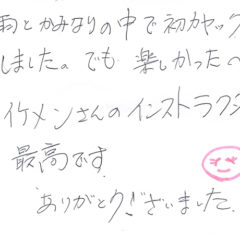 雨とかみなりの中で初カヤック
しました。でも 楽しかった
イケメンさんのインストラク
最高です
ありがとうございました。